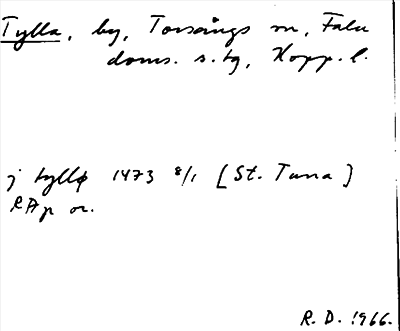 Tylla, by, Torsångs sn, Falu
doms. s.tg, Kopp. l.
j tyllø 1473 8/1 [St. Tuna]
RAp or.
R. D. 1966.